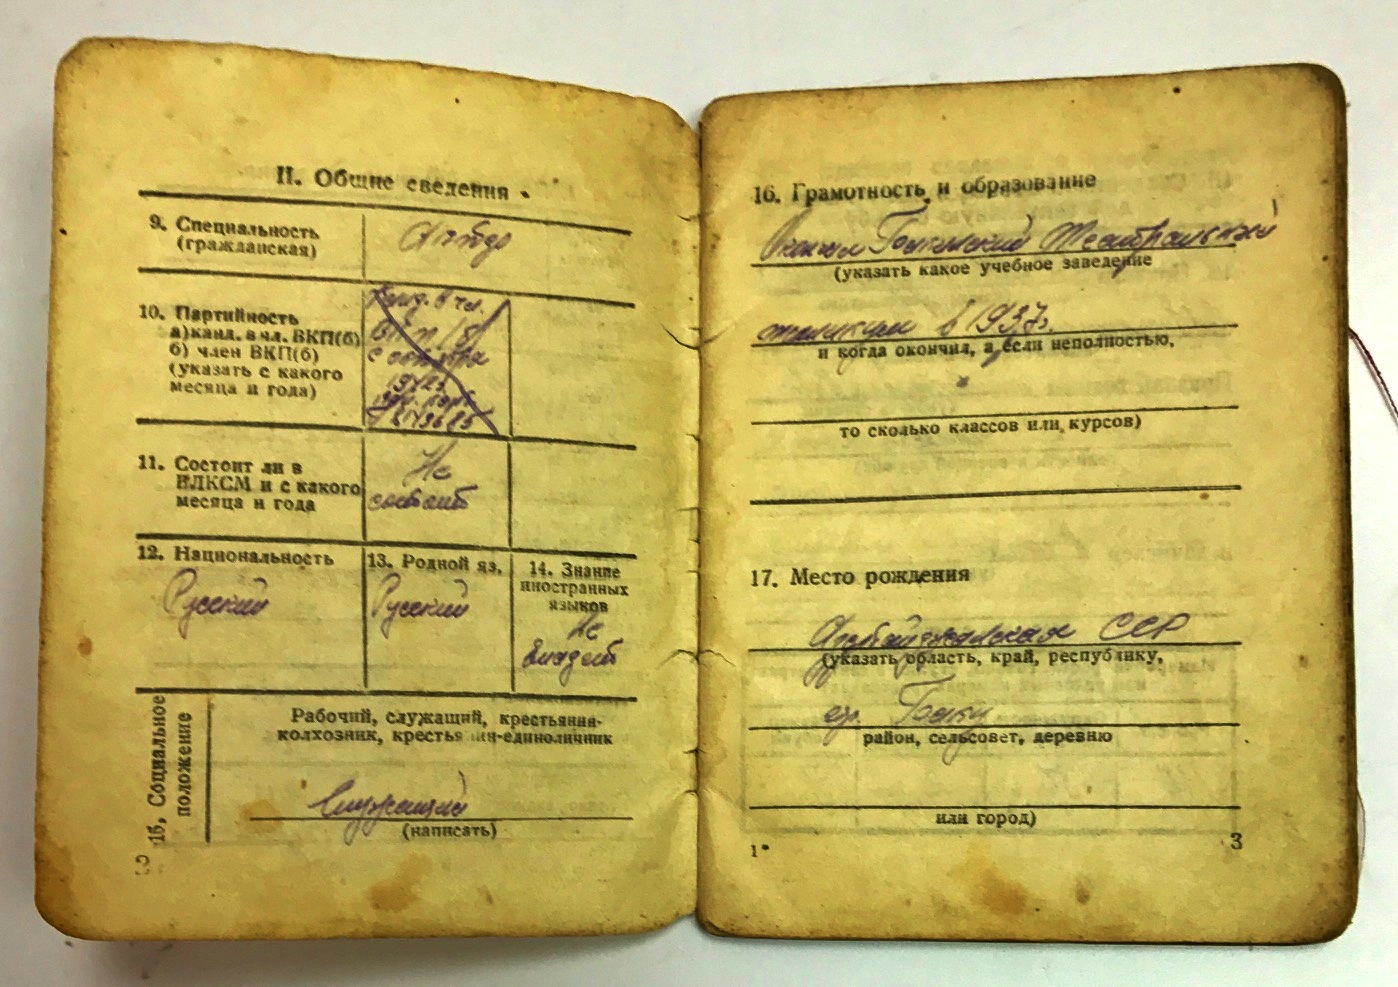 II. Общие сведения
9. Специальность
(гражданская)
Актер
10. Партийность
а) канд. в чл. ВКП(б)
б) член ВКП(б)
(указать с какого
месяца и года)
Канд. в чл.
ВКП(б)
с октября
11. Состоит ли в
ВЛКСМ и с какого
месяца и года
Не
состоит
12. Национальность
Русский
13. Родной яз.
Русский
14. Знание
иностранных
языков
Не
владеет
15. Социальное
положение
Рабочий, служащий, крестьянин-
колхозник, крестьянин-единоличник
Служащий
(написать)
16. Грамотность и образование
Окончил Бакинский Театральный
(указать какое учебное заведение
техникум в 1937г.
и когда окончил, а если неполностью,
то сколько классов или курсов)
17. Место рождения
Азербайджанская ССР
(указать область, край, республику,
гор. Баку
район, сельсовет, деревню
или город)
1*
3